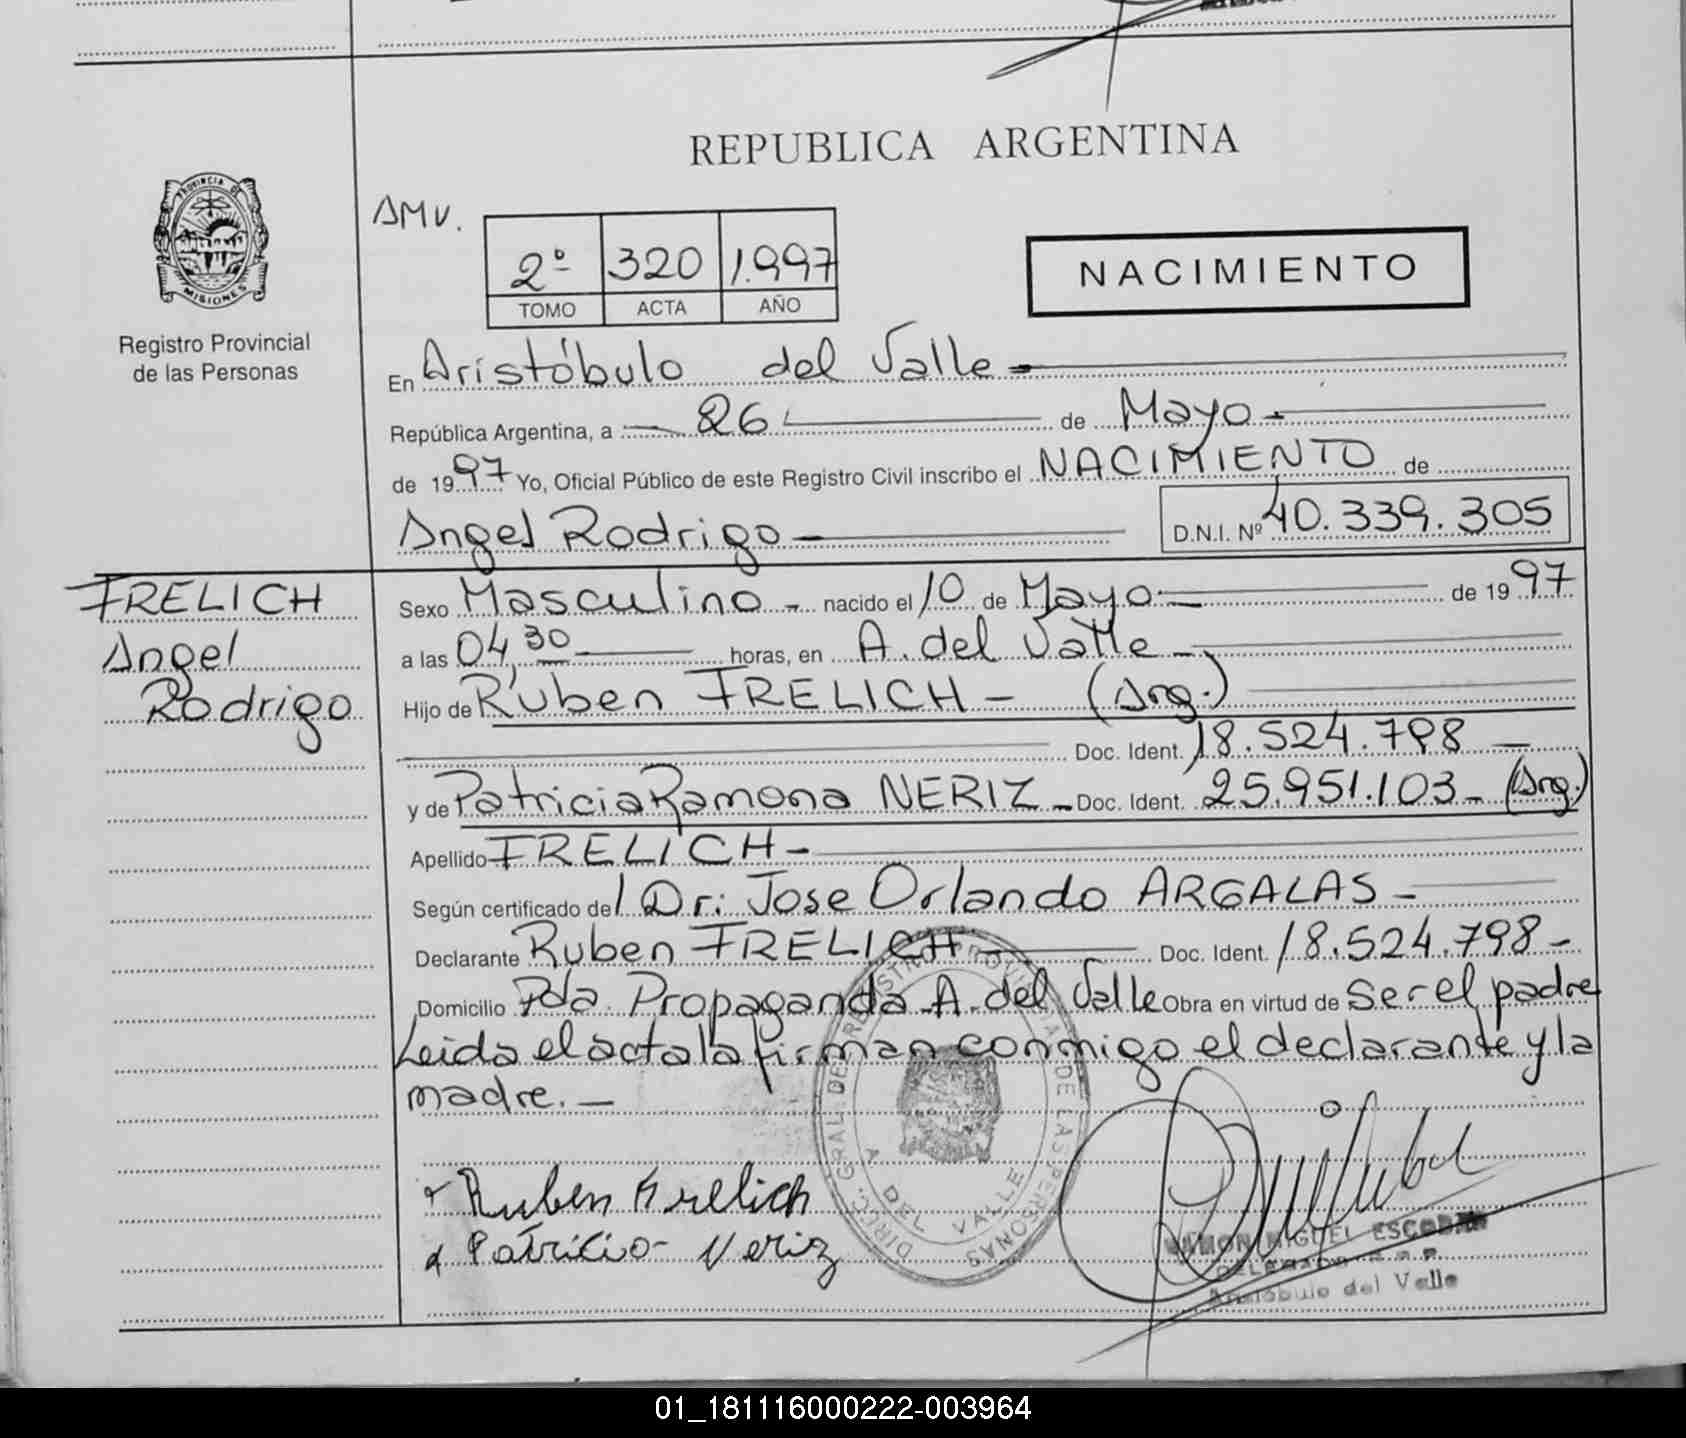 REPUBLICA ARGENTINA
PROVINCIA DE
MISIONES
Registro Provincial
de las Personas
AMV.
2º 320 1.997
TOMO ACTA AÑO
NACIMIENTO
En Aristóbulo del Valle
República Argentina, a 26 de Mayo
de 1997 Yo, Oficial Público de este Registro Civil inscribo el NACIMIENTO de
Angel Rodrigo D.N.I. Nº 40.339.305
FRELICH
Angel
Rodrigo
Sexo Masculino - nacido el 10 de Mayo de 1997
a las 04,30 horas, en A. del Valle
Hijo de Ruben FRELICH - (Arg.)
Doc. Ident. 18.524.798
y de Patricia Ramona NERIZ - Doc. Ident. 25.951.103 - (Arg.)
Apellido FRELICH -
Según certificado del Dr: Jose Orlando ARGALAS -
Declarante Ruben FRELICH - Doc. Ident. 18.524.798 -
Domicilio Pda. Propaganda A. del Valle Obra en virtud de ser el padre
Leida el acta la firman conmigo el declarante y la
madre. -
DIREC. GRAL. DE REGISTRO PROVINCIAL DE LAS PERSONAS
A DEL VALLE
Ruben Frelich
Patricia Neriz
RAMON MIGUEL ESCOBAR
DELEGADO
Aristóbulo del Valle
01_181116000222-003964